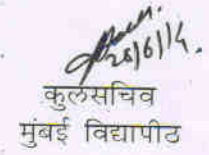 26/6/14.
कुलसचिव
मुंबई विद्यापीठ